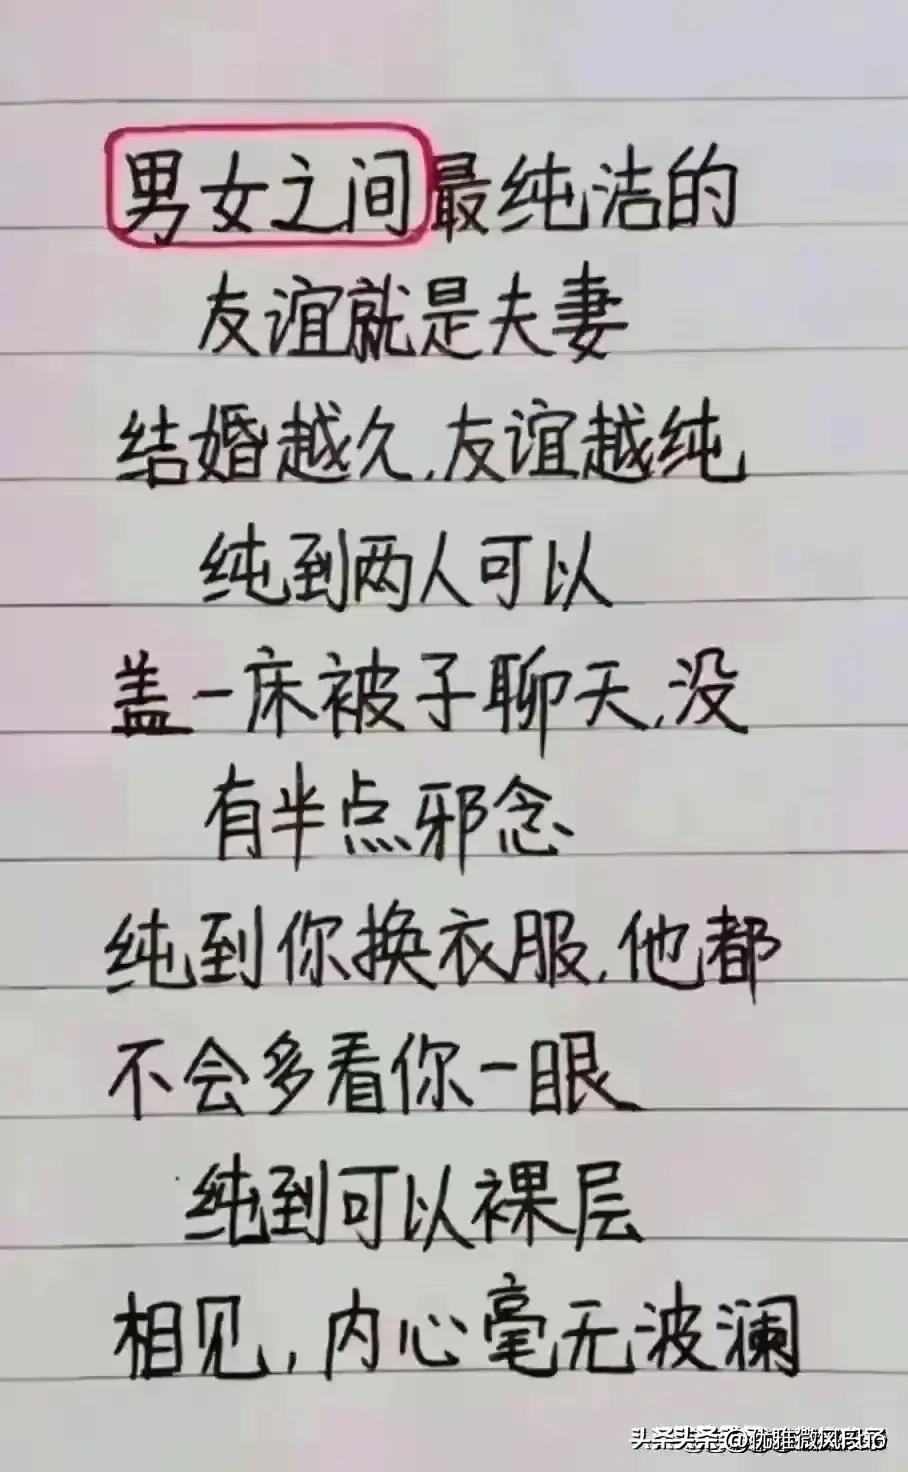 男女之间最纯洁的
友谊就是夫妻
结婚越久,友谊越纯
纯到两人可以
盖一床被子聊天,没
有半点邪念
纯到你换衣服,他都
不会多看你一眼
纯到可以裸层
相见,内心毫无波澜
头条头条@优雅微风段